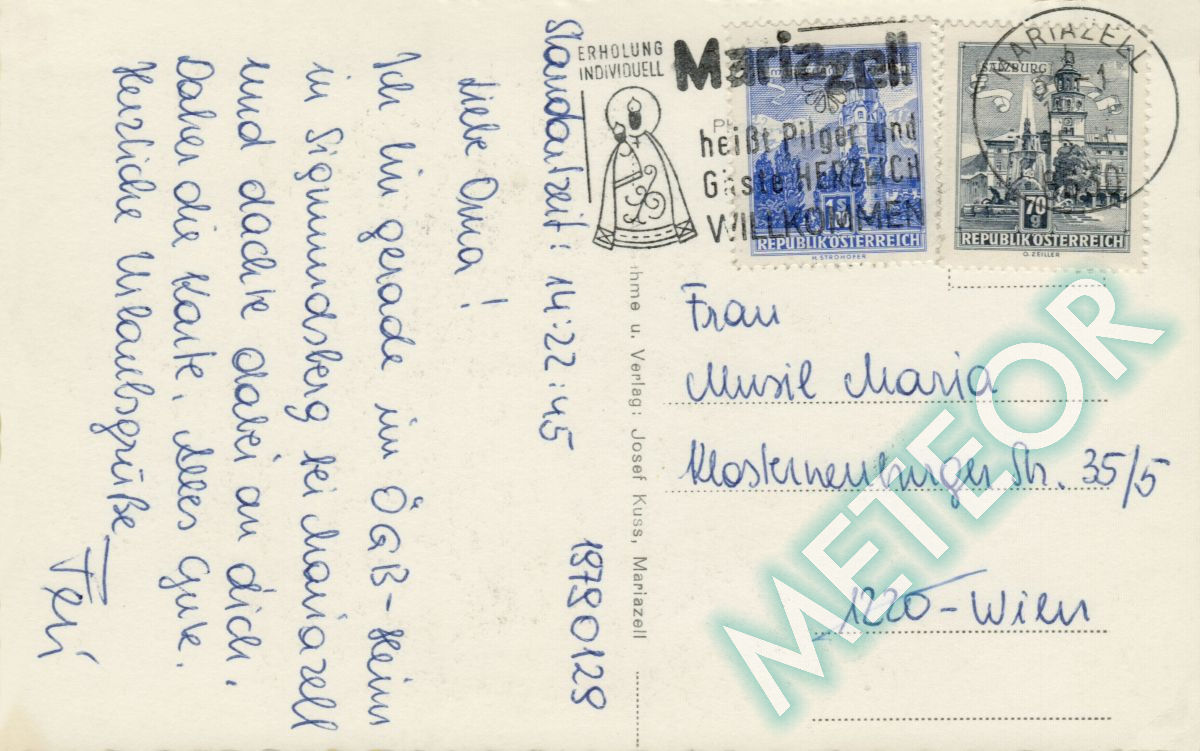 Standartzeit: 14:22:45 19780129
Liebe Oma!
Ich bin gerade im ÖGB-Heim
in Sigmundsberg bei Mariazell
und dachte dabei an dich.
Daher die Karte. Alles Gute.
Herzliche Urlaubsgrüße
Feri
ERHOLUNG
INDIVIDUELL
Mariazell
heißt Pilger und
Gäste HERZLICH
WILLKOMMEN
1S
REPUBLIK ÖSTERREICH
H. STROHOFER
SALZBURG
70g
REPUBLIK ÖSTERREICH
G. ZEILLER
MARIAZELL
hme u. Verlag: Josef Kuss, Mariazell
Frau
Musil Maria
Klosterneuburger Str. 35/5
1220-Wien
METEOR